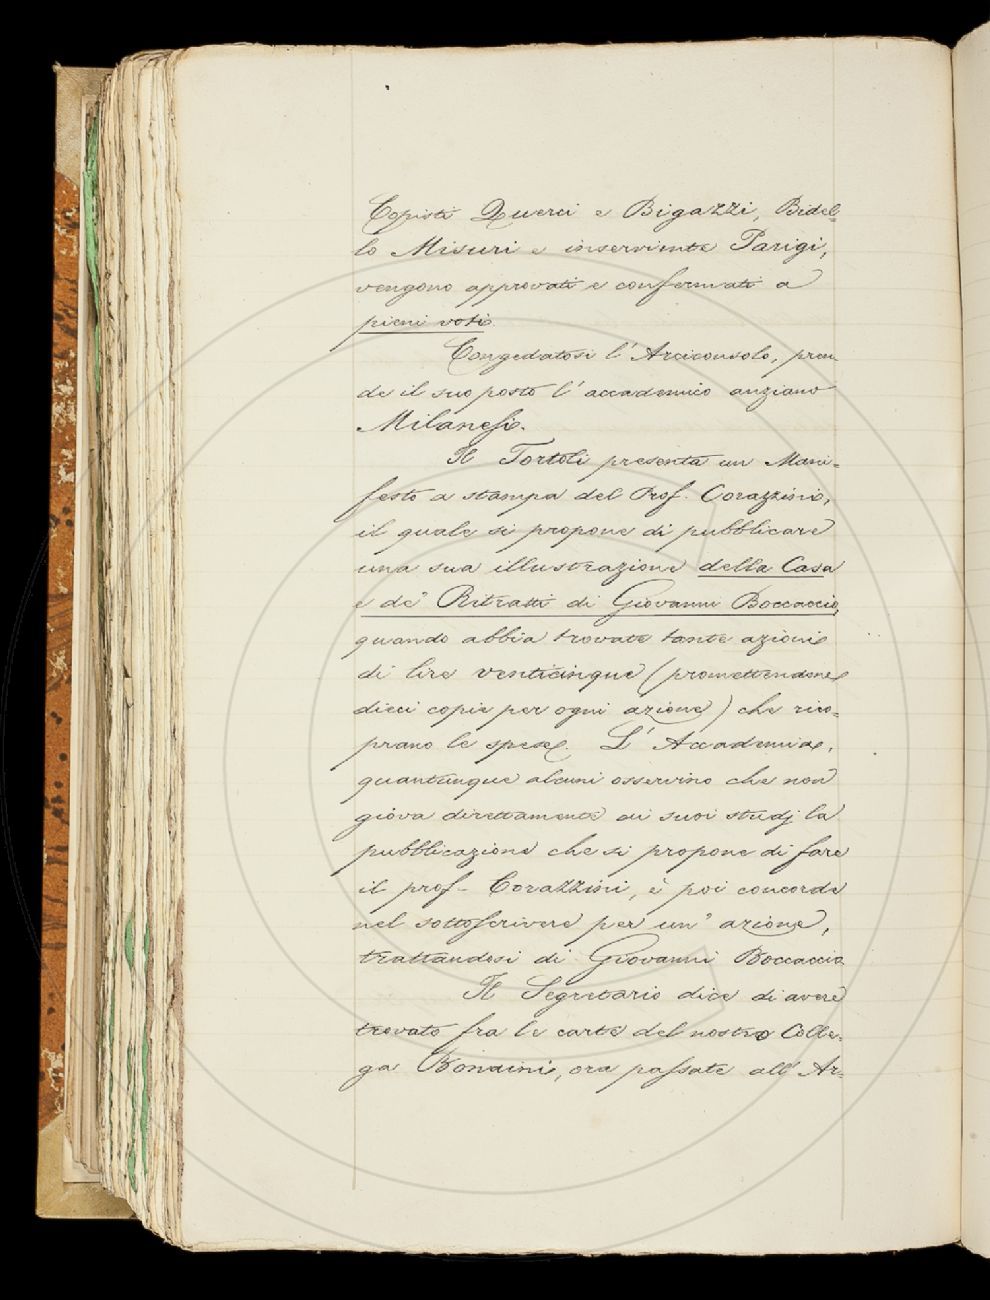 Copisti Querci e Bigazzi, Bidel-
lo Misuri e inserviente Parigi,
vengono approvati e confermati a
pieni voti.
Congedatosi l'Arciconsolo, pren
de il suo posto l'accademico anziano
Milanesi.
Il Tortoli presenta un Mani-
festo a stampa del Prof. Corazzini,
il quale si propone di pubblicare
una sua illustrazione della Casa
e de' Ritratti di Giovanni Boccaccio,
quando abbia trovate tante azioni
di lire venticinque (promettendone
dieci copie per ogni azione) che rico-
prano le spese. L'Accademia,
quantunque alcuni osservino che non
giova direttamente ai suoi studj la
pubblicazione che si propone di fare
il prof. Corazzini, è poi concorde
nel sottoscrivere per un' azione,
trattandosi di Giovanni Boccaccio
Il Segretario dice di avere
trovato fra le carte del nostro Colle-
ga Bonaini, ora passate all'Ar-